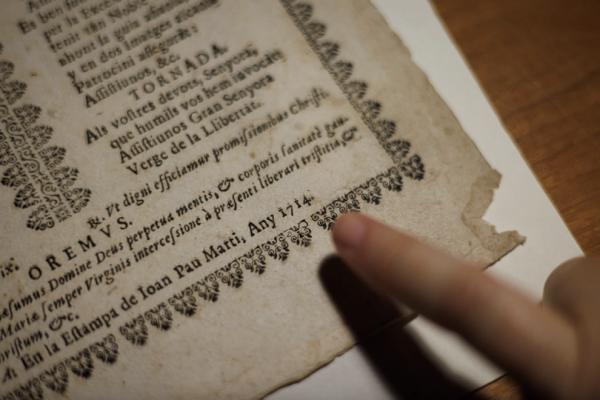 En
per la Excel
tenir tan Noble
ahont la guia
y en dos Imatges
Patrocini assegurat:
Assistiunos, &c.
TORNADA.
Als vostres devots, Senyora,
que humils vos hem invocat,
Assistiunos Gran Senyora
Verge de la Llibertat.
&. Vt digni efficiamur promissionibus Christi.
OREMVS.
Domine Deus perpetua mentis, & corporis sanitate gau-
Mariæ semper Virginis intercessione à præsenti liberari tristitia, &
&c.
En la Estampa de Ioan Pau Martì, Any 1714.